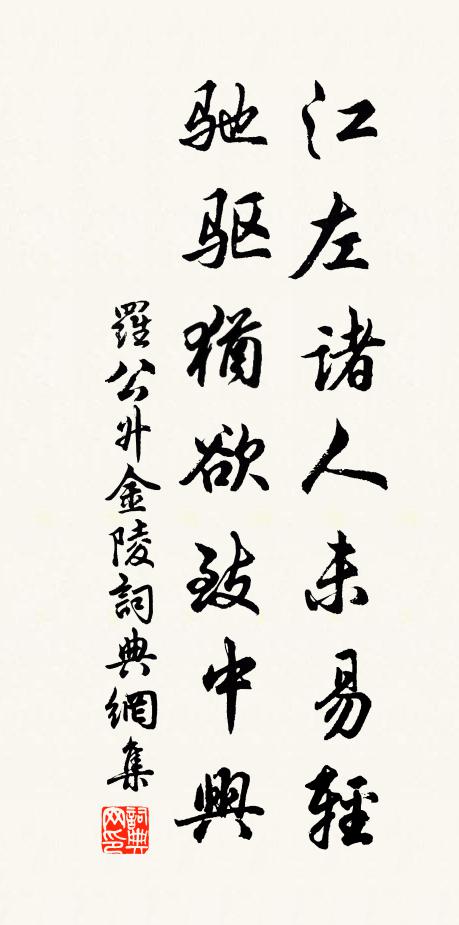 江左诸人未易輕
驰驱猶欲致中興
羅公升金陵詞典網集
詞典网印